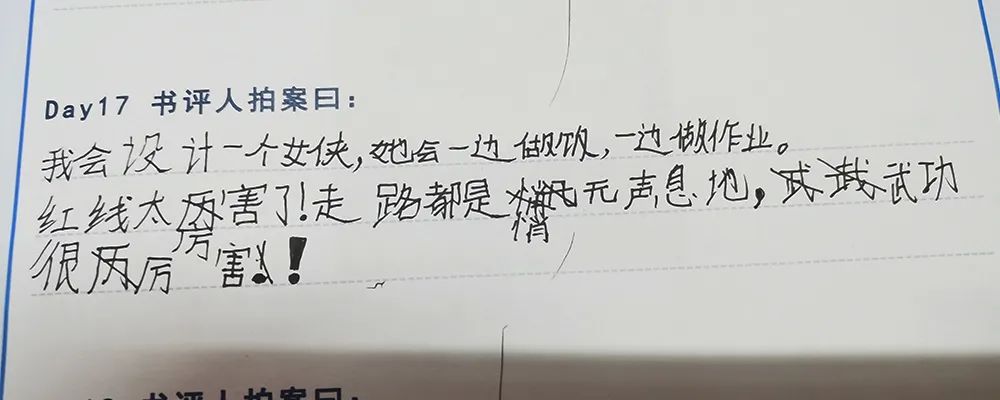 Day17 书评人拍案曰：
我会设计一个女侠，她会一边做饭，一边做作业。
红线太厉害了！走路都是悄无声息地，武功
很厉害！
书评人拍案曰：